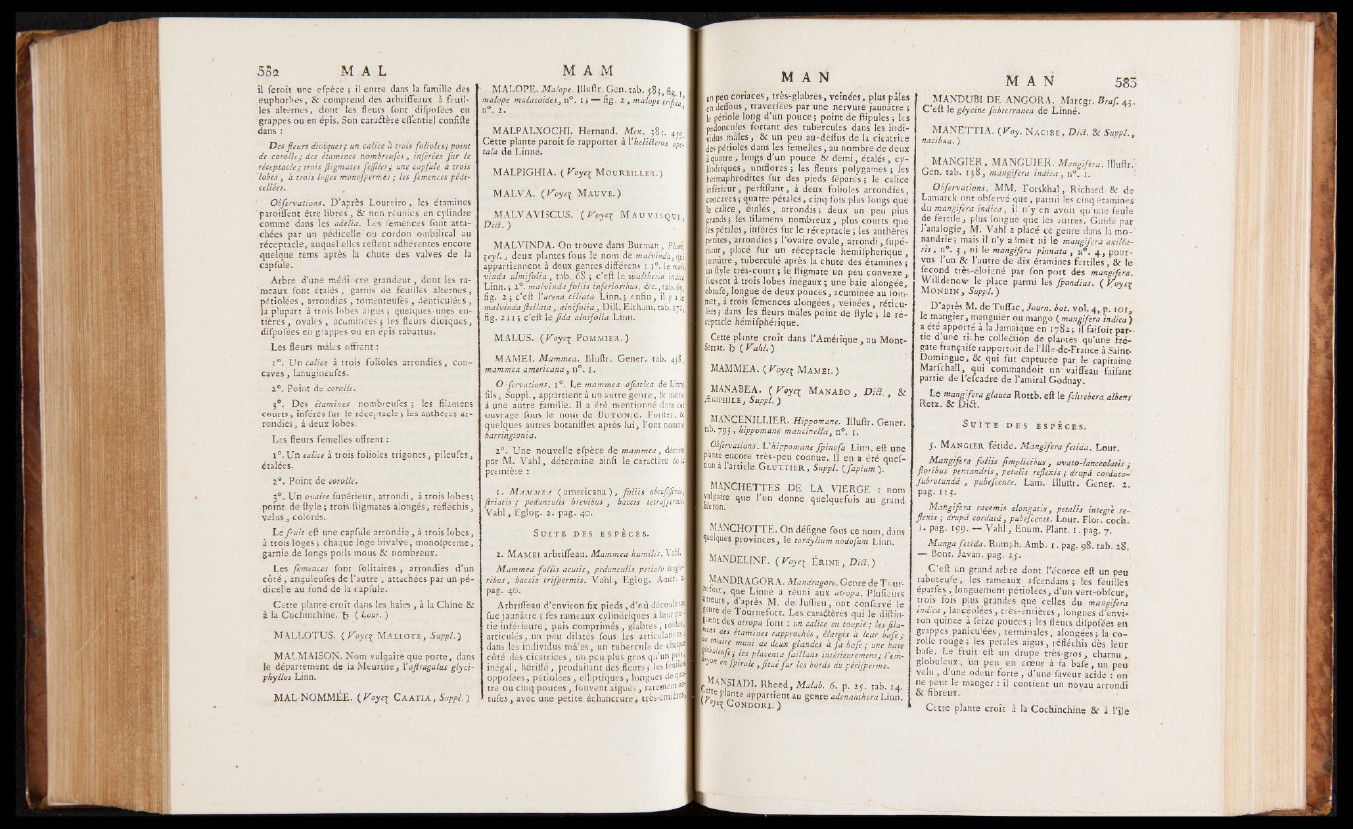 582 M A L
il feroit une efpèce ; il entre dans la famille des
euphorbes, & comprend des arbriffeaux à feuil-
les alternes, dont les fleurs font difpofées en
grappes ou en épis. Son caractère effentiel confifte
dans :
Des fleurs dioïques ; un calice à trois folioles ; point
de corolle ; des étamines nombreufes, inférées fur le
réceptacle ; trois ftigmates feffiles ; une capfule à trois
lobes, à trois loges monofpermes ; les femences pédi-
cellées.
Obfervations. D'après Loureiro, les étamines
paroiffent être libres, & non réunies en cylindre
comme dans les adelia. Les femences font atta-
chées par un pédicelle ou cordon ombilical au
réceptacle, auquel elles reftent adhérentes encore
quelque tems après la chute des valves de la
capfule.
Arbre d'une médiocre grandeur, dont les ra-
meaux font étalés, garnis de feuilles alternes,
pétiolées, arrondies, tomenteufes, denticulées,
la plupart à trois lobes aigus ; quelques-unes en-
tières, ovales, acuminées ; les fleurs dioïques,
difpofées en grappes ou en épis rabattus.
Les fleurs mâles offrent :
1°. Un calice à trois folioles arrondies, con-
caves, lanugineufes.
2°. Point de corolle.
3°. Des étamines nombreufes ; les filamens
courts, inférés fur le réceptacle ; les anthères ar-
rondies, à deux lobes.
Les fleurs femelles offrent :
1°. Un calice à trois folioles trigones, pileufes,
étalées.
2°. Point de corolle.
3°. Un ovaire fupérieur, arrondi, à trois lobes ;
point de ftyle ; trois ftigmates alongés, réfléchis,
velus, colorés.
Le fruit eft une capfule arrondie, à trois lobes,
à trois loges ; chaque loge bivalve, monofperme,
garnie de longs poils mous & nombreux.
Les femences font folitaires, arrondies d'un
côté, anguleufes de l'autre, attachées par un pé-
dicelle au fond de la capfule.
Cette plante croît dans les haies, à la Chine &
à la Cochinchine. ♄ ( Lour. )
MALLOTUS. ( Voyez MALLOTE, Suppl. )
MALMAISON. Nom vulgaire que porte, dans
le département de la Meurthe, l'aftragalus glyci-
phyllos Linn.
MAL-NOMMÉE. ( Voyez CAATIA, Suppl. )
M A M
MALOPE. Malope. Illuftr. Gen. tab. 583, fig. 1,
malope malacoides, n°. 1 ; — fig. 2, malope trifida,
n°. 2.
MALPALXOCHI. Hernand. Mex. 383.
Cette plante paroît fe rapporter à l'helicteres ape-
tala de Linné.
MALPIGHIA. ( Voyez MOUREILLER. )
MALVA. ( Voyez MAUVE. )
MALVAVISCUS. ( Voyez MAUVISQUE,
Dict. )
MALVINDA. On trouve dans Burman, Plant.
zeyl., deux plantes fous le nom de malvinda, qui
appartiennent à deux genres différens : 1°. le mal-
vinda ulmifolia, tab. 68 ; c'eft le waltheria indica
Linn. ; 2°. malvinda foliis inferioribus, &c., tab. 69,
fig. 2 ; c'eft l'urena ciliata Linn. ; enfin, il y a le
malvinda ftellata, alnifolia, Dill. Eltham. tab. 172,
fig. 211 ; c'eft le fida alnifolia Linn.
MALUS. ( Voyez POMMIER. )
MAMEI. Mammea. Illuftr. Gener. tab. 458,
mammea americana, n°. 1.
Obfervations. 1°. Le mammea afiatica de Linné
fils, Suppl., appartient à un autre genre, & même
à une autre famille. Il a été mentionné dans cet
ouvrage fous le nom de BUTONIC. Forfter, &
quelques autres botaniftes après lui, l'ont nommé
barringtonia.
2°. Une nouvelle efpèce de mammea, décrite
par M. Vahl, détermine ainfi le caractère de la
première :
1. MAMMEA ( americana ), foliis obtufiffimis,
ftriatis ; pedunculis brevibus, baccis tetrafpermis.
Vahl, Eglog. 2. pag. 40.
SUITE DES ESPÈCES.
2. MAMEI arbriffeau. Mammea humilis. Vahl.
Mammea foliis acutis, pedunculis petiolo longio-
ribus, baccis trifpermis. Vahl, Eglog. Amer. 2.
pag. 40.
Arbriffeau d'environ fix pieds, d'où découle un
fuc jaunâtre ; fes rameaux cylindriques à leur par-
tie inférieure, puis comprimés, glabres, roides,
articulés, un peu dilatés fous les articulations ;
dans les individus mâles, un tubercule de chaque
côté des cicatrices, un peu plus gros qu'un pois,
inégal, hériffé, produifant des fleurs ; les feuilles
oppofées, pétiolées, elliptiques, longues de qua-
tre ou cinq pouces, fouvent aiguës, rarement ob-
tufes, avec une petite échancrure, très-entières,
M A N
un peu coriaces, très-glabres, veinées, plus pâles
en deffous, traverfées par une nervure jaunâtre ;
le pétiole long d'un pouce ; point de ftipules ; les
pédoncules fortant des tubercules dans les indi-
vidus mâles, & un peu au-deffus de la cicatrice
des pétioles dans les femelles, au nombre de deux
à quatre, longs d'un pouce & demi, étalés, cy-
lindriques, uniflores ; les fleurs polygames ; les
hermaphrodites fur des pieds féparés ; le calice
inférieur, perfiftant, à deux folioles arrondies,
concaves ; quatre pétales, cinq fois plus longs que
le calice, étalés, arrondis ; deux un peu plus
grands ; les filamens nombreux, plus courts que
les pétales, inférés fur le réceptacle ; les anthères
petites, arrondies ; l'ovaire ovale, arrondi, fupé-
rieur, placé fur un réceptacle hemifphérique,
jaunâtre, tuberculé après la chute des étamines ;
un ftyle très-court ; le ftigmate un peu convexe,
fouvent à trois lobes inégaux ; une baie alongée,
obtufe, longue de deux pouces, acuminée au fom-
met, à trois femences alongées, veinées, réticu-
lées ; dans les fleurs mâles point de ftyle ; le ré-
ceptacle hémifphérique.
Cette plante croît dans l'Amérique, au Mont-
Serrat. ♄ ( Vahl. )
MAMMEA. ( Voyez MAMEI. )
MANABEA. ( Voyez MANABO, Dict., &
ÆGIPHILE, Suppl. )
MANCENILLIER. Hippomane. Illuftr. Gener.
tab. 793, hippomane mancinella, n°. 1.
Obfervations. L'hippomane fpinofa Linn. eft une
plante encore très-peu connue. Il en a été quef-
tion à l'article GLUTTIER, Suppl. ( fapium ).
MANCHETTES DE LA VIERGE : nom
vulgaire que l'on donne quelquefois au grand
liferon.
MANCHOTTE. On défigne fous ce nom, dans
quelques provinces, le tordylium nodofum Linn.
MANDELINE. ( Voyez ÉRINE, Dict. )
MANDRAGORA. Mandragore. Genre de Tour-
nefort, que Linné a réuni aux atropa. Plufieurs
auteurs, d'après M. de Juffieu, ont confervé le
genre de Tournefort. Les caractères qui le diftin-
guent des atropa font : un calice en toupie ; les fila-
mens des étamines rapprochés, élargis à leur bafe ;
un ovaire muni de deux glandes à fa bafe ; une baie
globuleufe ; les placenta faillans intérieurement ; l'em-
bryon en fpirale, fitué fur les bords du périfperme.
MANSIADI. Rheed, Malab. 6. p. 25. tab. 14.
Cette plante appartient au genre adenanthera Linn.
( Voyez CONDORI. )
M A N 583
MANDUBI DE ANGORA. Marcgr. Braf. 43.
C'eft le glycine fubterranea de Linné.
MANETTIA. ( Voy. NACIBE, Dict. & Suppl.,
nacibaa. )
MANGIER, MANGUIER. Mangifera. Illuftr.
Gen. tab. 138, mangifera indica, n°. 1.
Obfervations. MM. Forskhal, Richard & de
Lamarck ont obfervé que, parmi les cinq étamines
du mangifera indica, il n'y en avoit qu'une feule
de fertile, plus longue que les autres. Guidé par
l'analogie, M. Vahl a placé ce genre dans la mo-
nandrie ; mais il n'y admet ni le mangifera axilla-
ris, n°. 3, ni le mangifera pinnata, n°. 4, pour-
vus l'un & l'autre de dix étamines fertiles, & le
fecond très-éloigné par fon port des mangifera.
Willdenow le place parmi les fpondias. ( Voyez
MONBIN, Suppl. )
D'après M. de Tuffac, Journ. bot. vol. 4, p. 101,
le mangier, manguier ou mango ( mangifera indica )
a été apporté à la Jamaïque en 1782 ; il faifoit par-
tie d'une riche collection de plantes qu'une fré-
gate françaife rapportoit de l'Ifle-de-France à Saint-
Domingue, & qui fut capturée par le capitaine
Marfchall, qui commandoit un vaiffeau faifant
partie de l'efcadre de l'amiral Godnay.
Le mangifera glauca Rottb. eft le fchrebera albens
Retz. & Dict.
SUITE DES ESPÈCES.
5. MANGIER fétide. Mangifera fetida. Lour.
Mangifera foliis fimplicibus, ovato-lanceolatis ;
floribus pentandris, petalis reflexis ; drupâ cordato-
fubrotundâ, pubefcente. Lam. Illuftr. Gener. 2.
pag. 113.
Mangifera racemis elongatis, petalis integrè re-
flexis ; drupâ cordatâ, pubefcente. Lour. Flor. coch.
1. pag. 199. — Vahl, Enum. Plant. 1. pag. 7.
Manga fetida. Rumph. Amb. 1. pag. 98. tab. 28.
— Bont. Javan. pag. 25.
C'eft un grand arbre dont l'écorce eft un peu
raboteufe, les rameaux afcendans ; les feuilles
éparfes, longuement pétiolées, d'un vert-obfcur,
trois fois plus grandes que celles du mangifera
indica, lancéolées, très-entières, longues d'envi-
ron quinze à feize pouces ; les fleurs difpofées en
grappes paniculées, terminales, alongées ; la co-
rolle rouge ; les pétales aigus, réfléchis dès leur
bafe. Le fruit eft un drupe très-gros, charnu,
globuleux, un peu en cœur à fa bafe, un peu
velu, d'une odeur forte, d'une faveur acide : on
ne peut le manger : il contient un noyau arrondi
& fibreux.
Cette plante croît à la Cochinchine & à l'île